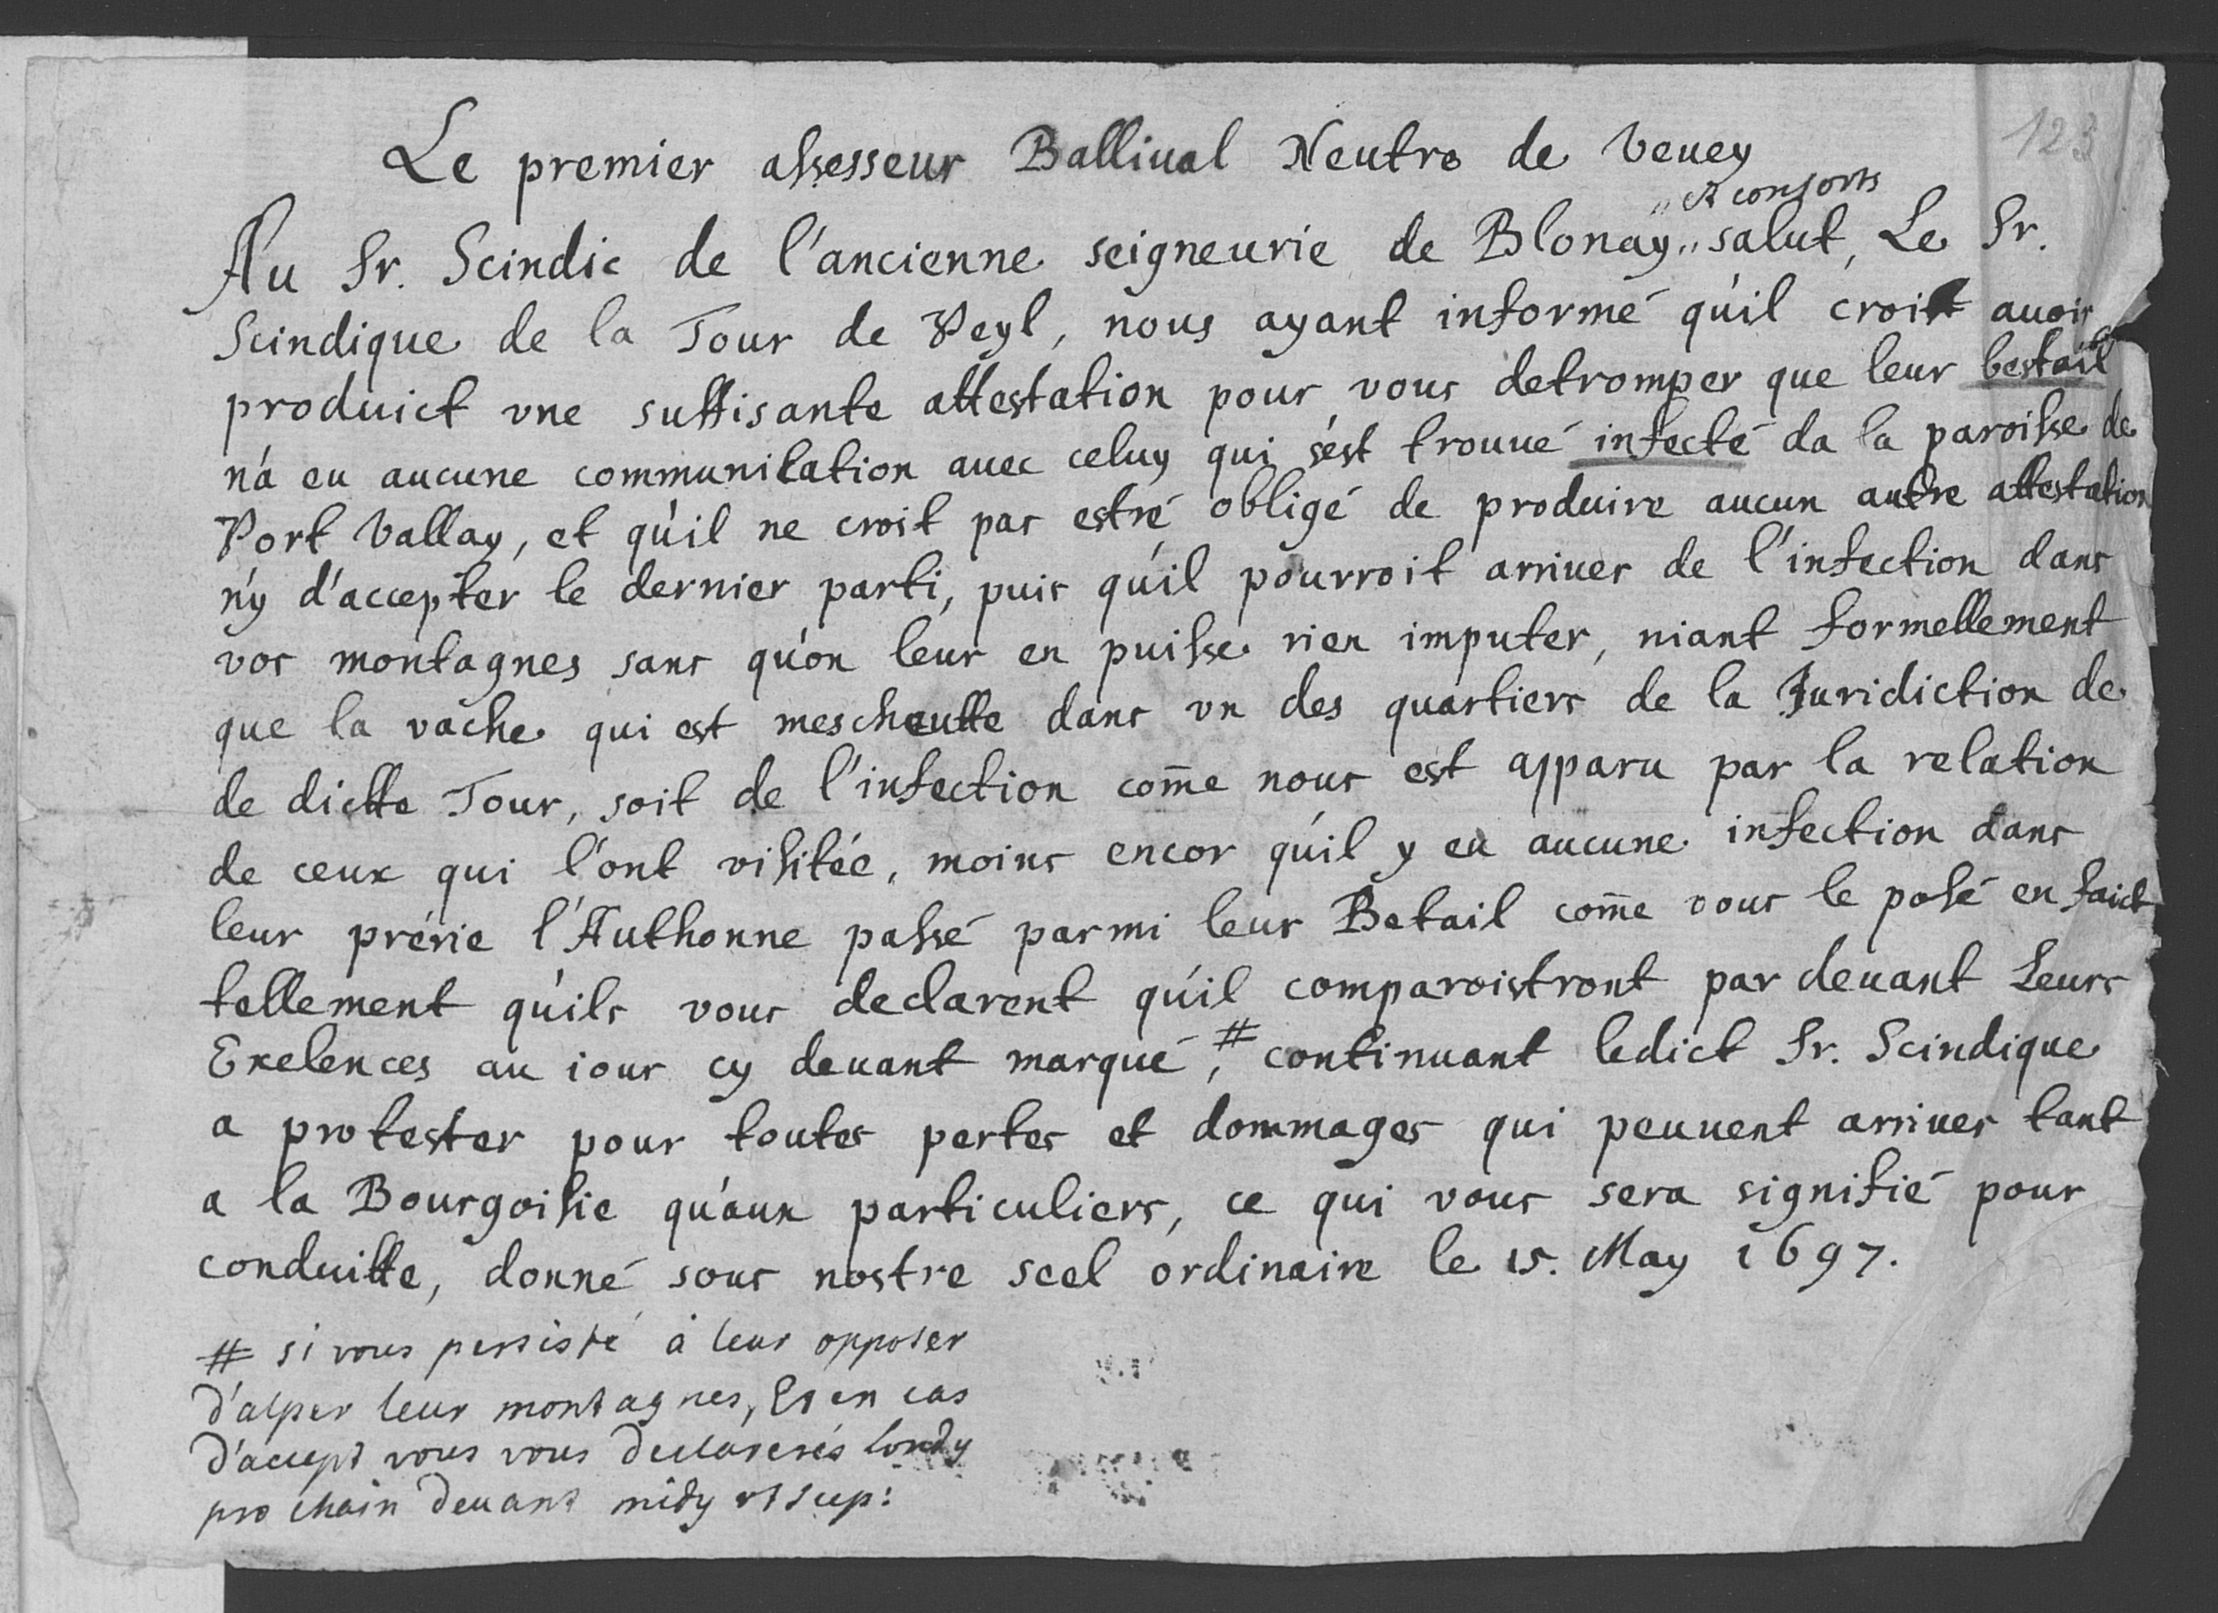 123
Le premier assesseur Balliual Neutre de Veuey
et consorts
Au Sr. Scindic de l'ancienne seigneurie de Blonay,, salut, Le Sr.
Scindique de la Tour de Peyl, nous ayant informé qu'il croit auoir
produict vne suffisante attestation pour vous detromper que leur bestail
n'a eu aucune communication auec celuy qui s'est trouué infecté da la paroisse de
Port Vallay, et qu'il ne croit pas estre obligé de produire aucun autre attestation
n'y d'accepter le dernier parti, puis qu'il pourroit arriuer de l'infection dans
vos montagnes sans qu'on leur en puisse rien imputer, niant formellement
que la vache qui est mescheutte dans vn des quartiers de la Juridiction de
de dictte Tour, soit de l'infection com̄e nous est apparu par la relation
de ceux qui l'ont visitée, moins encor qu'il y eu aucune infection dans
leur prérie l'Authonne passé parmi leur Betail com̄e vous le posé en faict
tellement qu'ils vous declarent qu'il comparoistront par deuant Leurs
Exelences au iour cy deuant marqué, # continuant ledict Sr. Scindique
a protester pour toutes pertes et dommages qui peuuent arriuer tant
a la Bourgoisie qu'aux particuliers, ce qui vous sera signifié pour
conduitte, donné sous nostre scel ordinaire le 15. May 1697.
# si vous persisté à leur opposer
d'alper leur montagnes, Et en cas
d'accept vous vous declarerés londy
prochain deuant midy et sup: